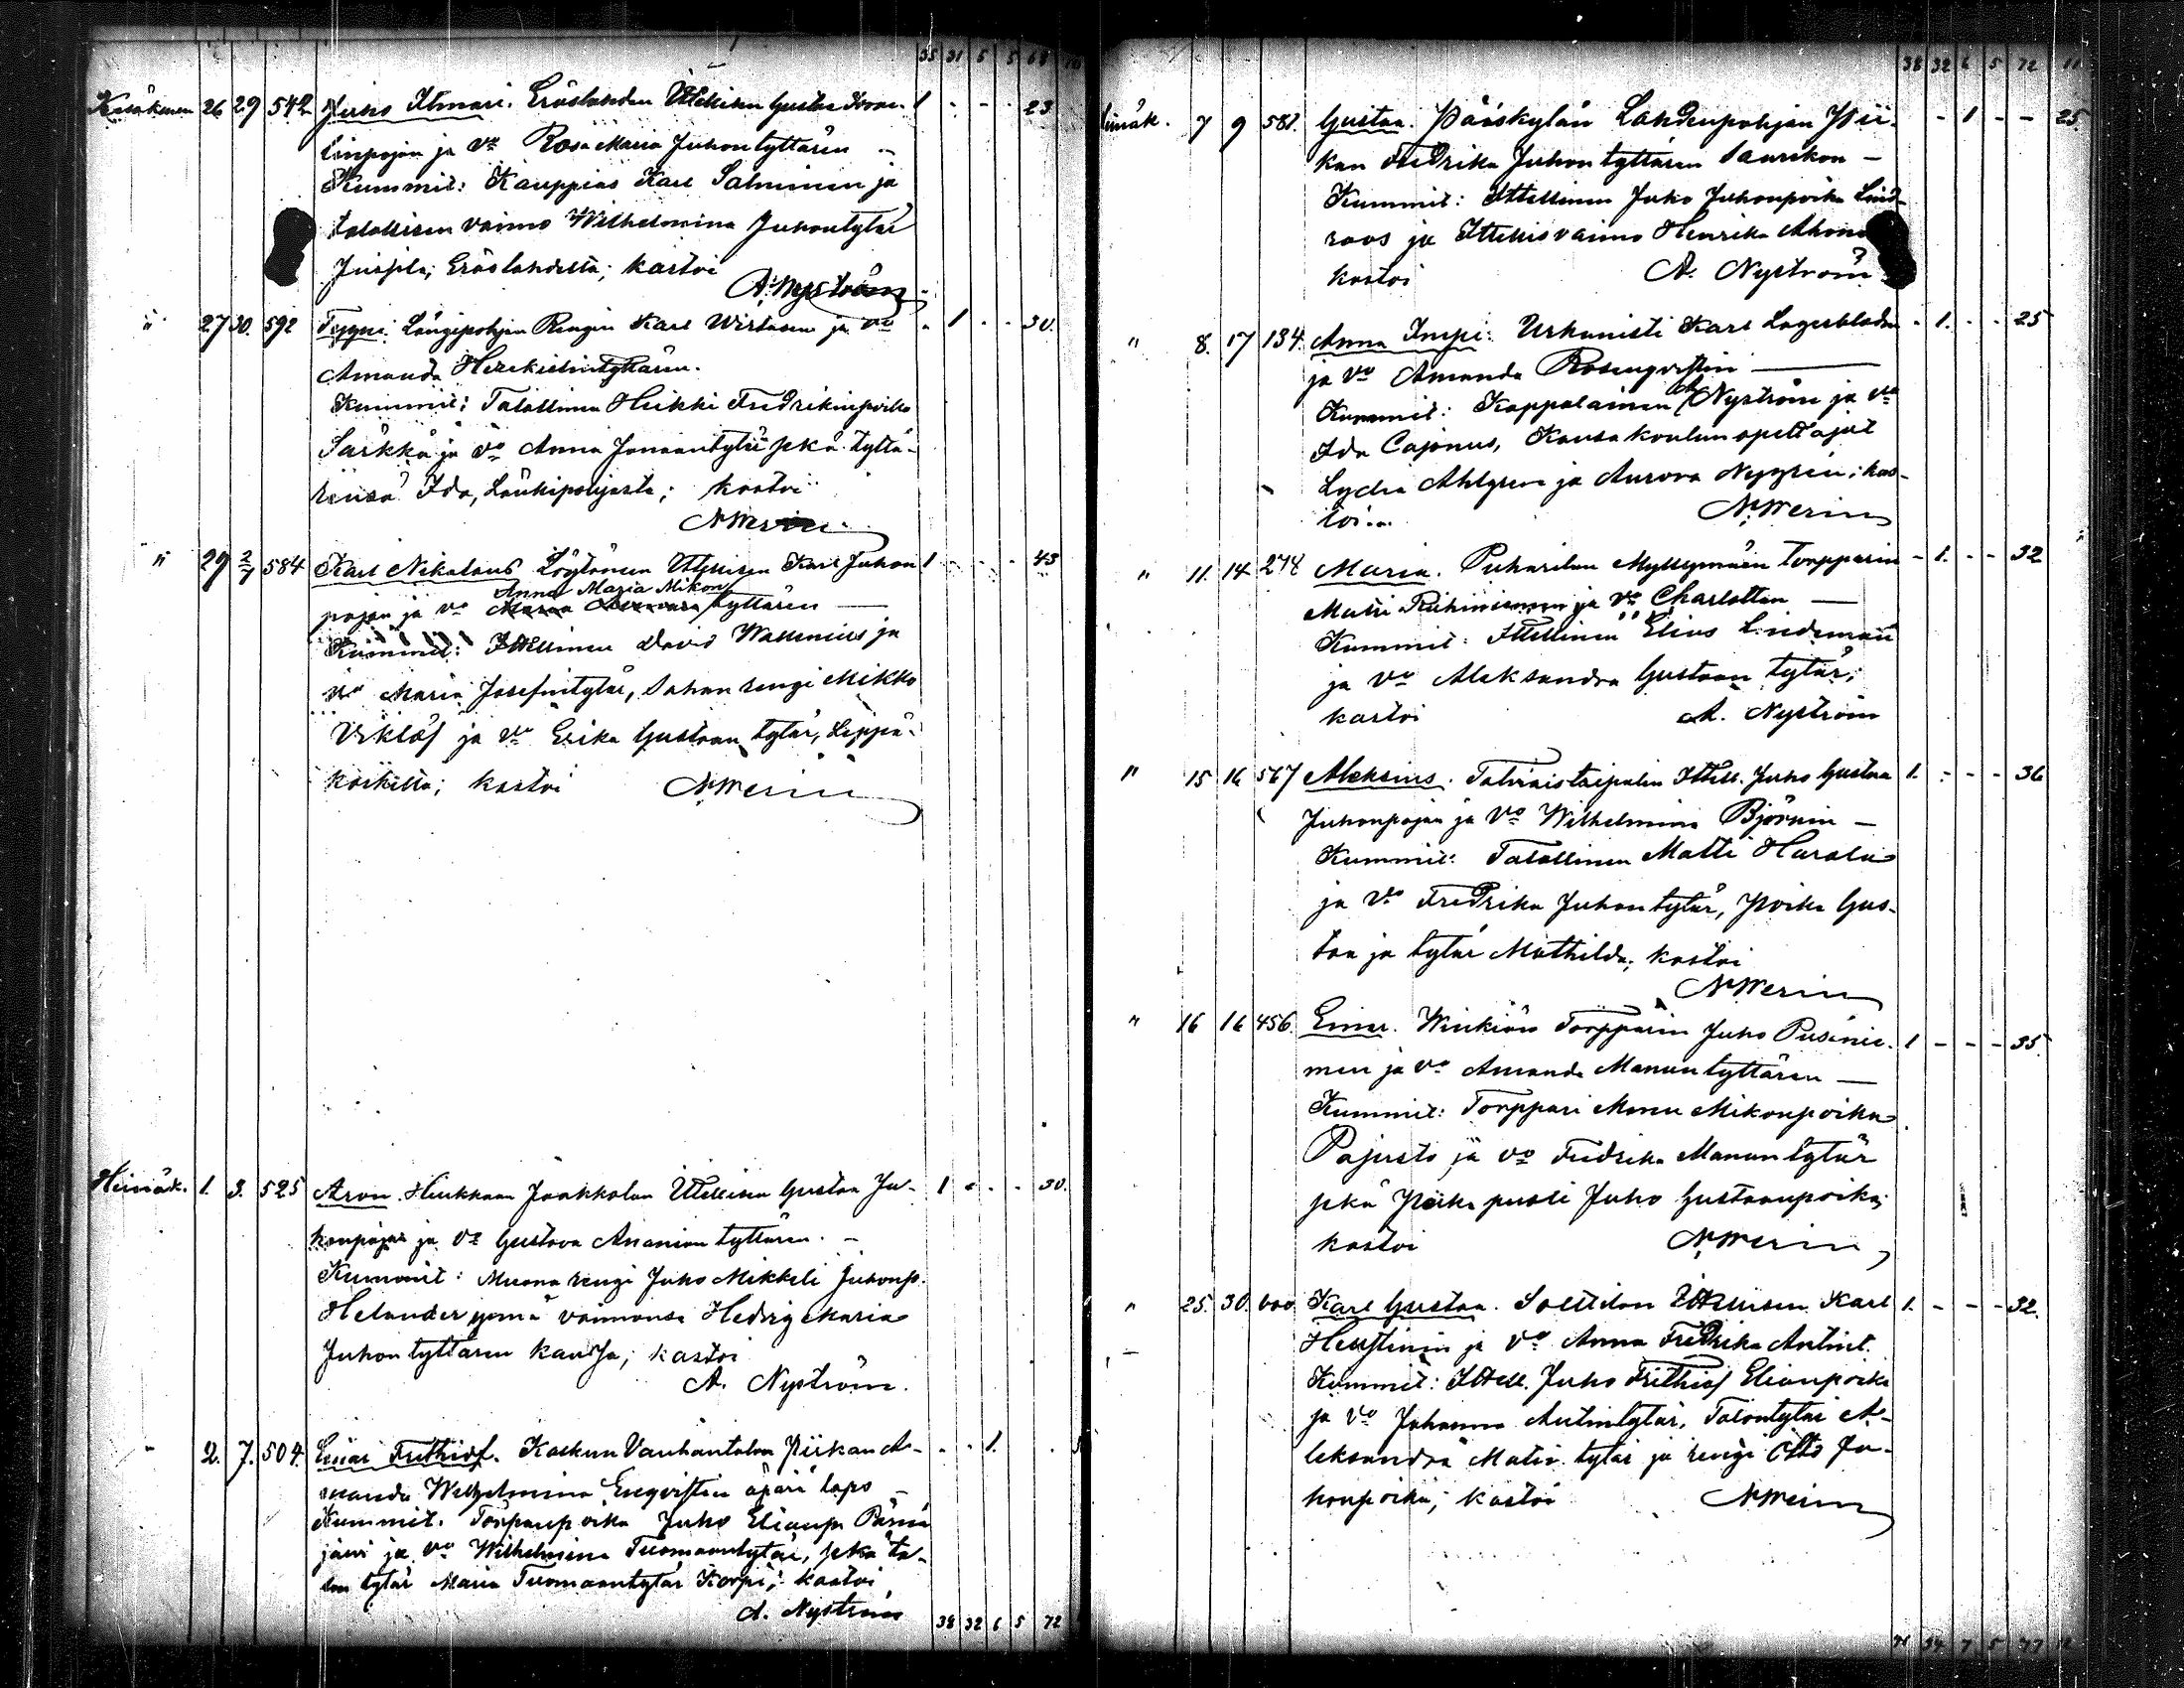 35 31 5 5 68
Kesäkuun 26 29 542 Juho Ilmari. Eräslahden Itsellisen Gustaa 1 - - - 23
linpojan ja vo Rosa Maria Juhontyttären -
Kummit: Kauppias Karl Salminen ja
talollisen vaimo Wilhelmina Juhontytär
Jussila; Eräslahdelta; kastoi
A. Nyström
" 27 30. 592 Tyyni. Längipohjan Rengin Karl Wirtasen ja vo - 1 - - 30.
Amanda Herekielintyttären.
Kummit: Talollinen Heikki Fredrikinpoika
Särkkä ja vo Anna Joonaantytär sekä tyttä-
rensä Ida, Länkipohjasta; kastoi
N. Merin
" 29 2/7 584 Karl Nikolaus Löytänen Itsellisen Karl Juhon 1 - - - 43
Anna Maria Mikon
pojan ja vo Maria tyttären —
Kummit: Itsellinen David Wallenius ja
vo Maria Josefintytär, Sahan rengi Mikko
Viklöf ja vo Erika Gustaan tytär, Leppä-
koskelta; kastoi N. Merin
Heinäk. 1. 3. 525 Aron. Hirkkaan Jaakkolan Itsellisen Gustaa Ju- 1 - - - 30.
honpojan ja vo Gustava Ananian tyttären. -
Kummit: Muona rengi Juho Mikkeli Juhonp.
Helander ynnä vaimonsa Hedvig Maria
Juhon tyttären kanssa; kastoi
A. Nyström.
" 2. 7. 504. Einar Frithiof. Kaskun Vanhantalon Piikan A- - - 1. -
manda Wilhelmina Engvistin äpärä laps -
Kummit. Torpanpoika Juho Elianp.
järvi ja vo Wilhelmina Tuomaantytär, sekä ta-
lon tytär Maria Tuomaantytär Korpi; kastoi
A. Nyström
38 32 6 5 72
38 32 6 5 72 11
Heinäk. 7 9 581. Gustaa. Pääskylän Lahdenpohjan Pii- - 1 - - 25.
kan Fredrika Juhon tyttären Saarikon -
Kummit: Itsellinen Juho Juhonpoika Lind-
roos ja Itsellisvaimo Henrika
kastoi A. Nyström
" 8. 17 134. Anna Impi. Urkunisti Karl Lagerbladin - 1. - - 25
ja vo Amanda Rosenqvistin —
Kummit: Kappalainen A Nyström ja vo
Ida Cajanus, Kansakoulun opettajat
Lydia Ahlgren ja Aurora Nygren; kas-
toi. N. Merin
" 11. 14 278 Maria. Puharilan Myllymäen Torpparin - 1. - - 32
Matti Riihiniemen ja vo Charlottan —
Kummit: Itsellinen Elias Lindeman
ja vo Aleksandra Gustaan tytär;
kastoi A. Nyström
" 15 16 567 Aleksius. Talviaistaipalen Itsell. Juho Gustaa 1. - - - 36
Juhonpojan ja vo Wilhelmina Björnin —
Kummit: Talollinen Matti Harala
ja vo Fredrika Juhontytär, poika Gus-
taa ja tytär Mathilda; kastoi
N. Merin
" 16 16 456. Einar. Winkiön Torpparin Juho Pusinie- 1 - - - 35.
men ja vo Amanda Manuntyttären —
Kummit: Torppari Manu Mikonpoika
Pajusto ja vo Fredrika Manun tytär
sekä poika puoli Juho Gustaanpoika;
kastoi N. Merin
" 25. 30. 600 Karl Gustaa. Solttilan Itsellisen Karl 1. - - - 32.
Helstinin ja vo Anna Fredrika Antint.
Kummit: Itsell. Juho Frithiof Elianpoika
ja vo Johanna Antintytär, Talontytär A-
leksandra Matin tytär ja rengi Otto Ju-
honpoika; kastoi N. Merin
34 7 5 77